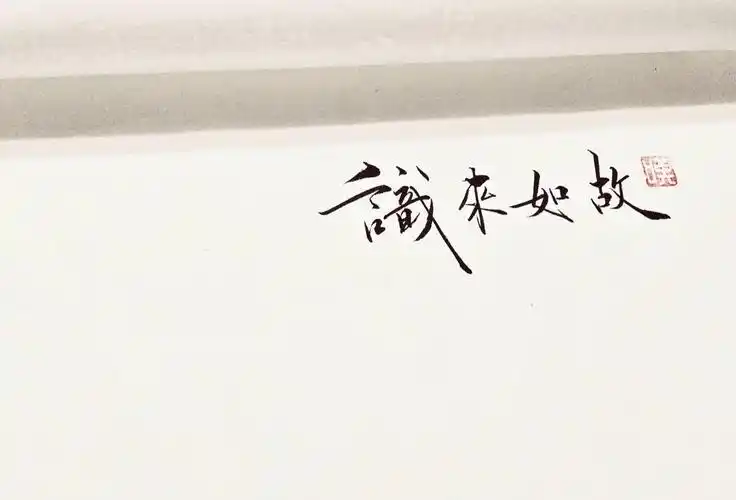 識來如故